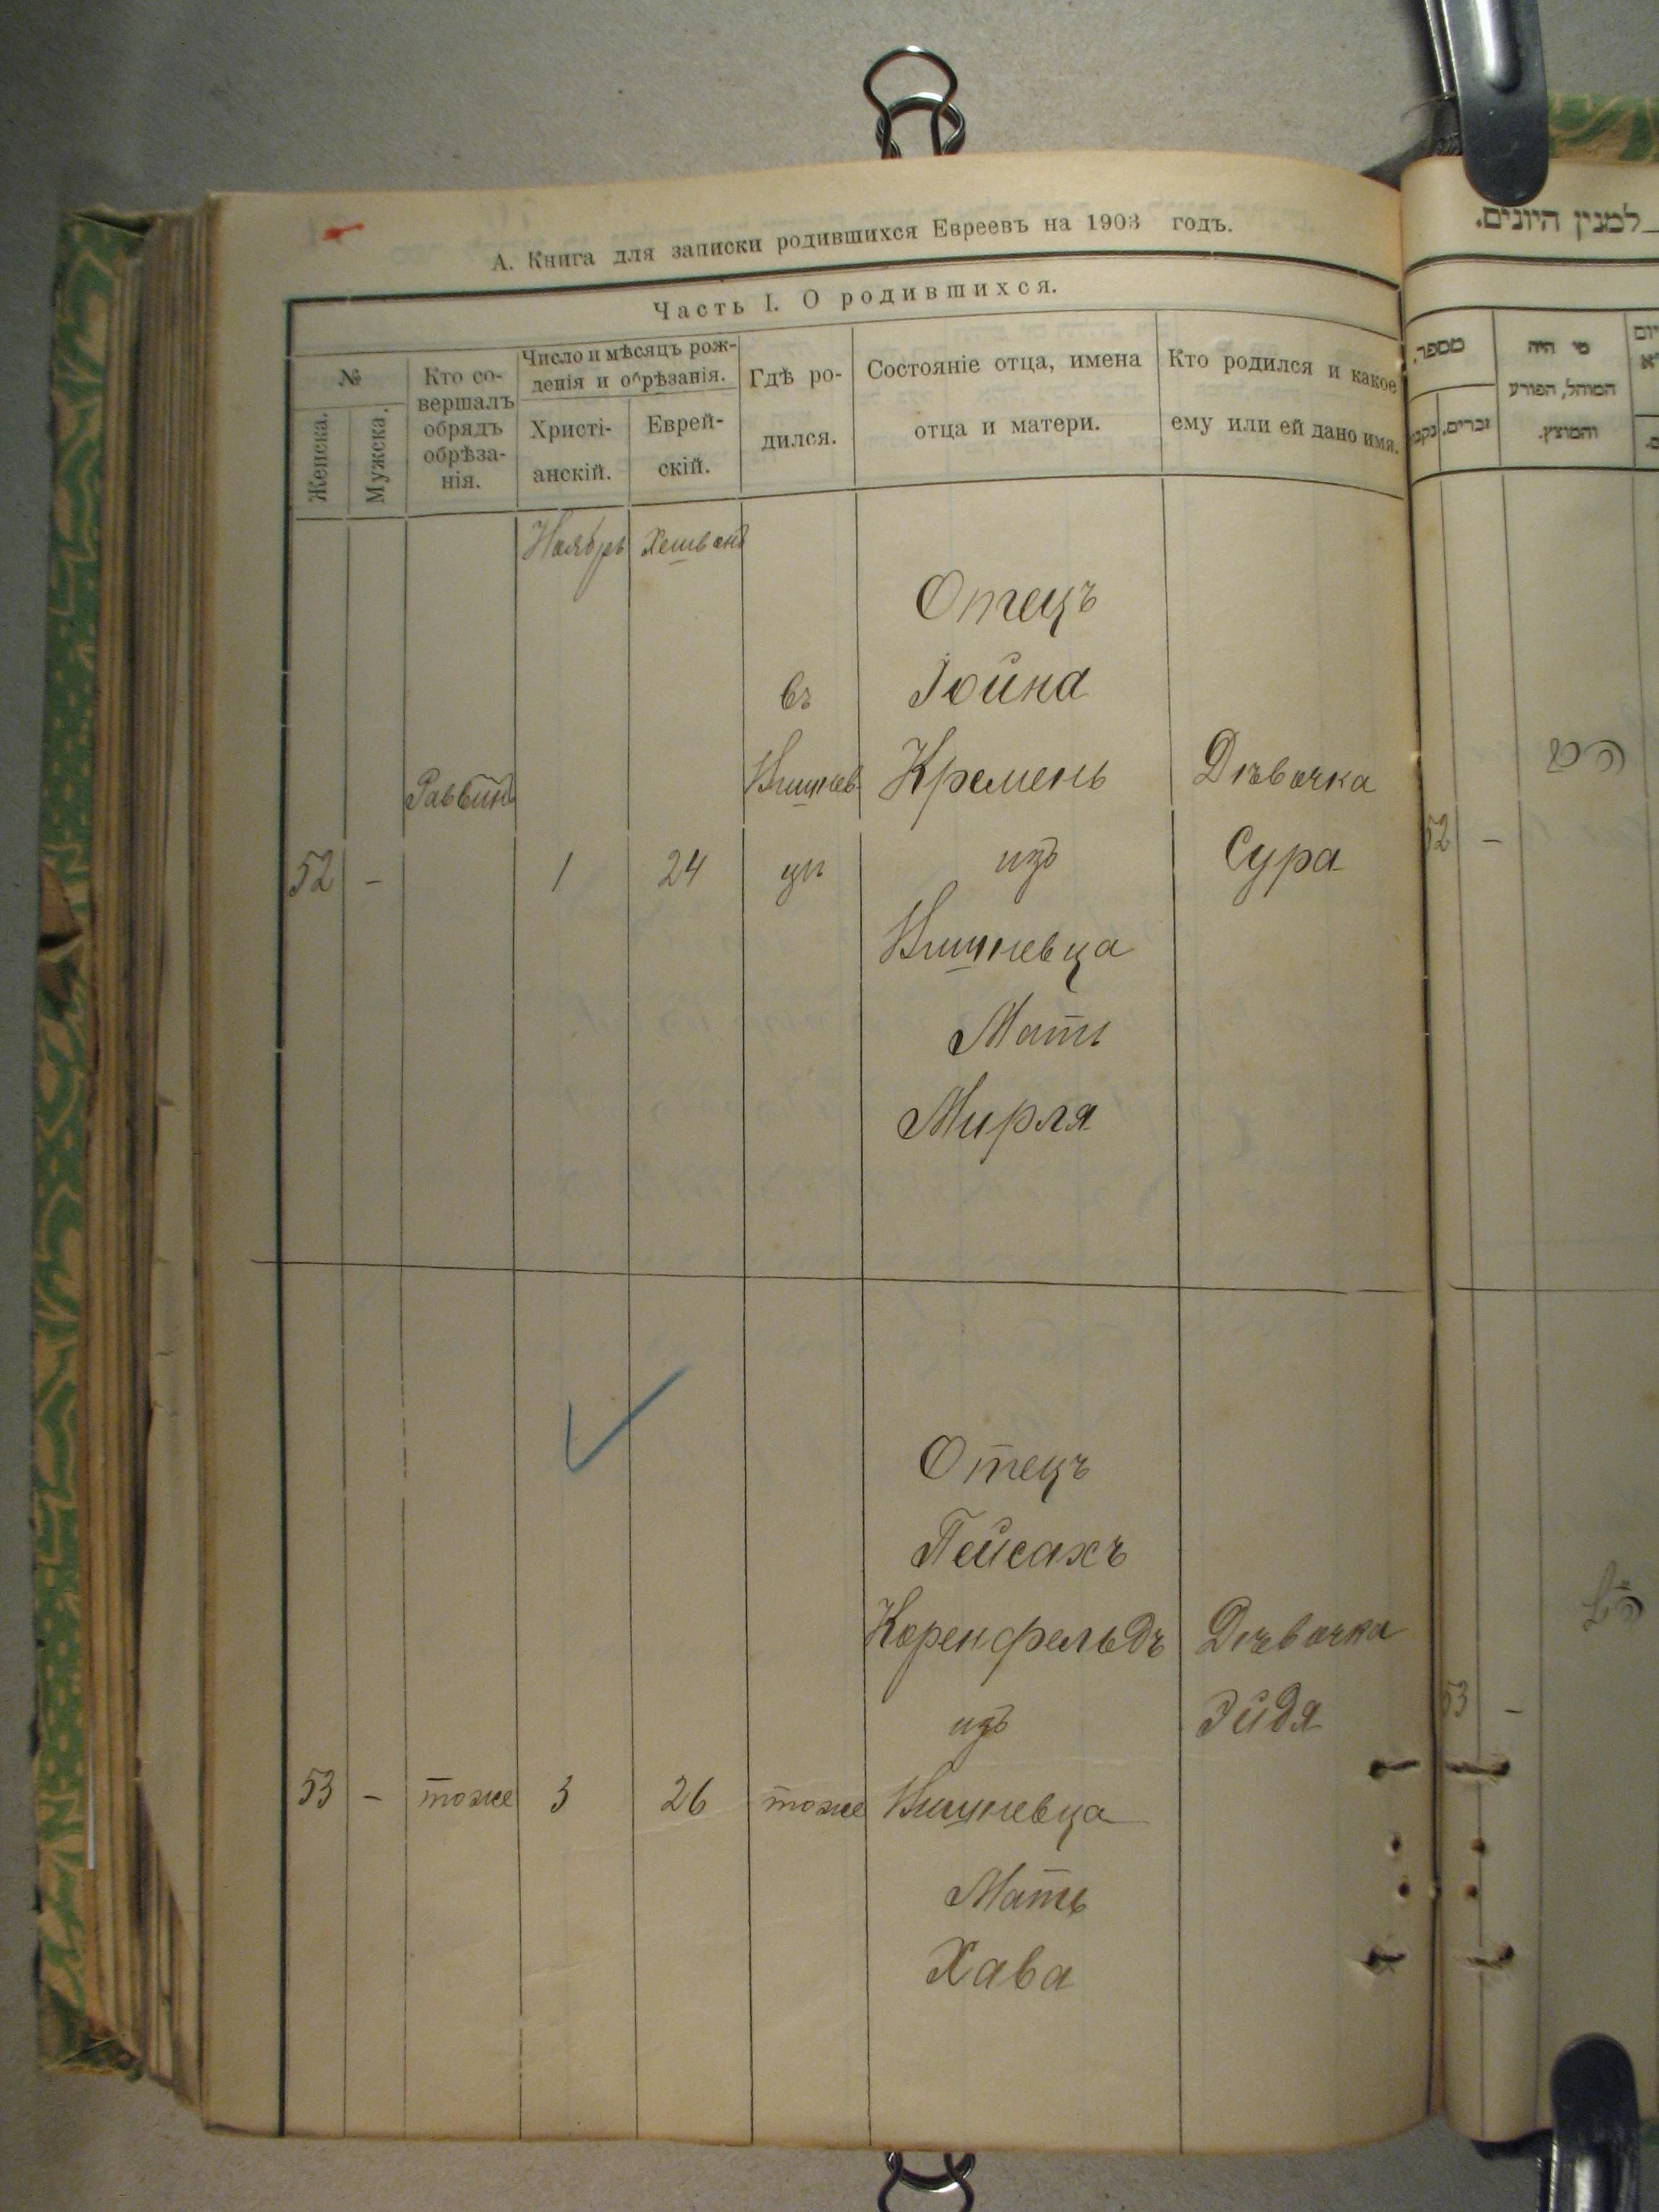 А. Книга для записки родившихся Евреевъ на 1903 годъ.
Часть I. О родившихся.
№
Женска.
Мужска.
Кто со-
вершалъ
обрядъ
обрѣза-
нія.
Число и мѣсяцъ рож-
денія и обрѣзанія.
Христі-
анскій.
Еврей-
скій.
Гдѣ ро-
дился.
Состояніе отца, имена
отца и матери.
Кто родился и какое
ему или ей дано имя.
Ноябрь Хешванъ
Отецъ
въ Іойна
Раввинъ Вишнев Кремень Дѣвочка
52 - 1 24 цѣ изъ Сура
Вишневца
Мать
Мирля
Отецъ
Пейсахъ
Коренфельдъ Дѣвочка
изъ Эйдя
53 - тоже 3 26 тоже Вишневца
Мать
Хава
למנין היונים.
מספר.
זכרים.
מי היה
המוהל, הפורע
והמוצץ.
52 -
53 -